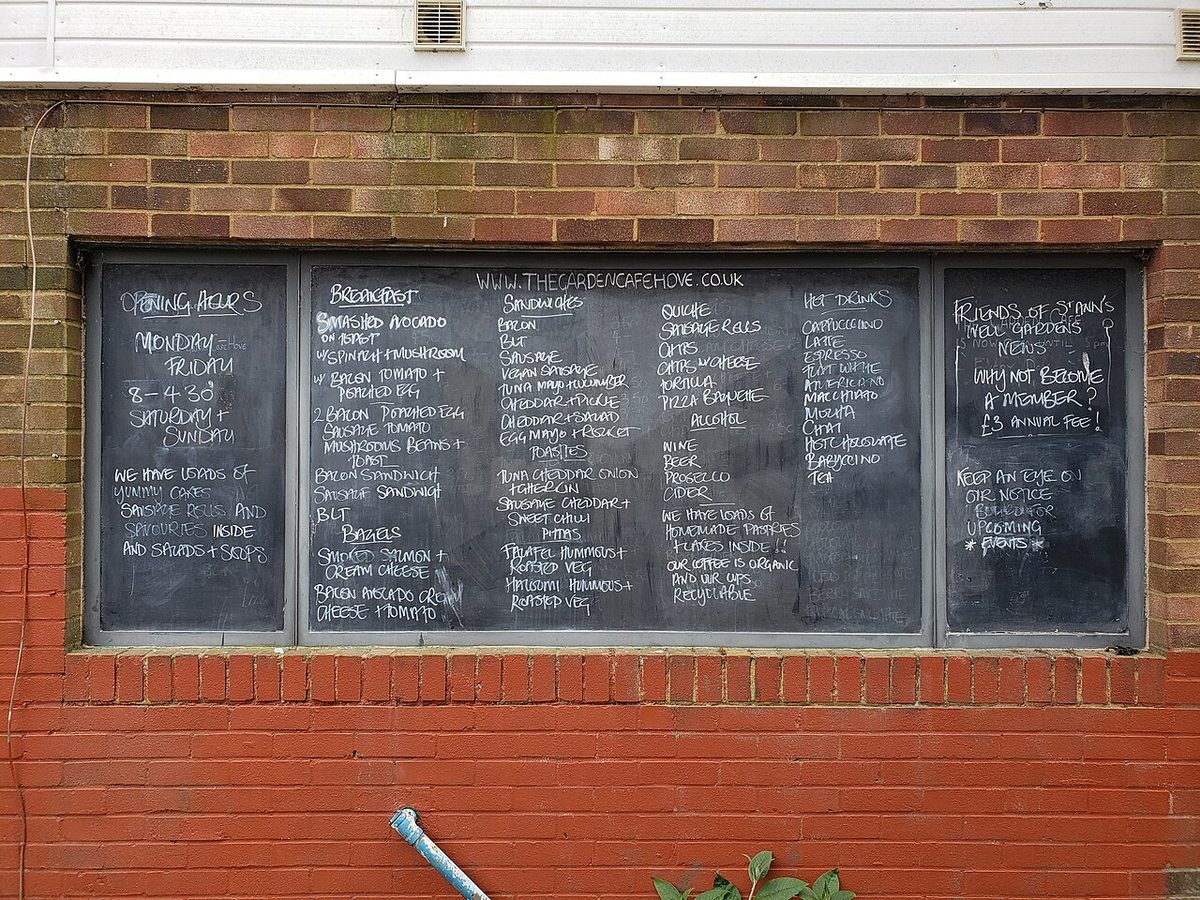 OPENING HOURS
MONDAY -
FRIDAY
8 - 4.30
SATURDAY +
SUNDAY
WE HAVE LOADS OF
YUMMY CAKES
SAUSAGE ROLLS AND
SAVOURIES INSIDE
AND SALADS + SOUPS
WWW.THEGARDENCAFEHOVE.CO.UK
BREAKFAST
SMASHED AVOCADO
ON TOAST
W/ SPINACH + MUSHROOM
W/ BACON TOMATO +
POACHED EGG
2 BACON POACHED EGG
SAUSAGE TOMATO
MUSHROOMS BEANS +
TOAST
BACON SANDWICH
SAUSAGE SANDWICH
BLT
BAGELS
SMOKED SALMON +
CREAM CHEESE
BACON AVOCADO CREAM
CHEESE + TOMATO
SANDWICHES
BACON
BLT
SAUSAGE
VEGAN SAUSAGE
TUNA MAYO + CUCUMBER
CHEDDAR + PICKLE
CHEDDAR + SALAD
EGG MAYO + ROCKET
TOASTIES
TUNA CHEDDAR ONION
+ GHERKIN
SAUSAGE CHEDDAR +
SWEET CHILLI
PITTAS
FALAFEL HUMMOUS +
ROASTED VEG
HALOUMI HUMMOUS +
ROASTED VEG
QUICHE
SAUSAGE ROLLS
CHIPS
CHIPS W CHEESE
TORTILLA
PIZZA BAGUETTE
ALCOHOL
WINE
BEER
PROSECCO
CIDER
WE HAVE LOADS OF
HOMEMADE PASTRIES
+ CAKES INSIDE !!
OUR COFFEE IS ORGANIC
AND OUR CUPS
RECYCLABLE
HOT DRINKS
CAPPUCCINO
LATTE
ESPRESSO
FLAT WHITE
AMERICANO
MACCHIATO
MOCHA
CHAI
HOT CHOCOLATE
BABYCCINO
TEA
FRIENDS OF ST ANN'S
WELL GARDENS
NEWS
WHY NOT BECOME
A MEMBER ?
£3 ANNUAL FEE !
KEEP AN EYE ON
OUR NOTICE
BOARD FOR
UPCOMING
* EVENTS *